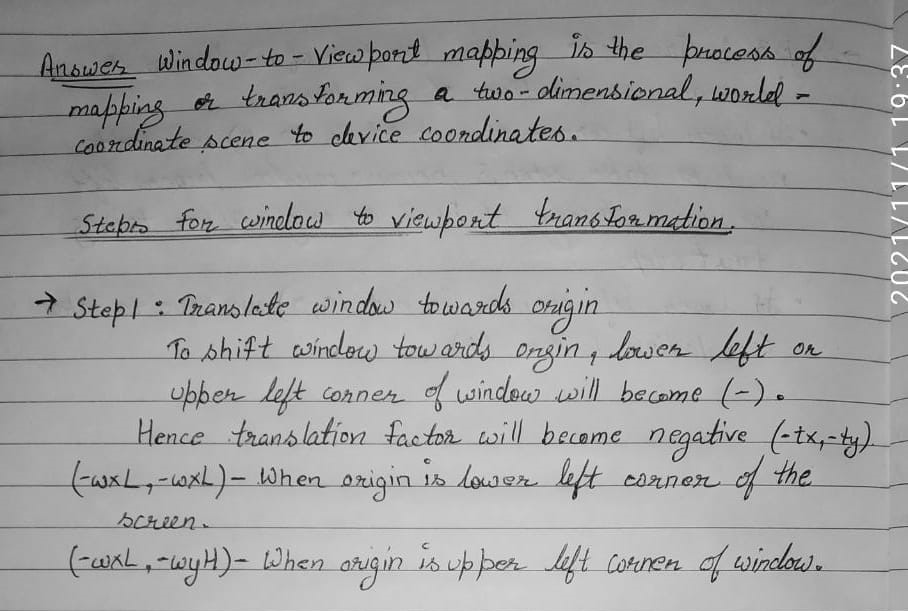 Answer Window-to-Viewport mapping is the process of
mapping or transforming a two-dimensional, world-
coordinate scene to device coordinates.
Steps for window to viewport transformation.
→ Step 1 : Translate window towards origin
To shift window towards origin, lower left or
upper left corner of window will become (-).
Hence translation factor will become negative (-tx,-ty).
(-wxL,-wxL) - When origin is lower left corner of the
screen.
(-wxL,-wyH) - When origin is upper left corner of window.
2021/11/1 19:37